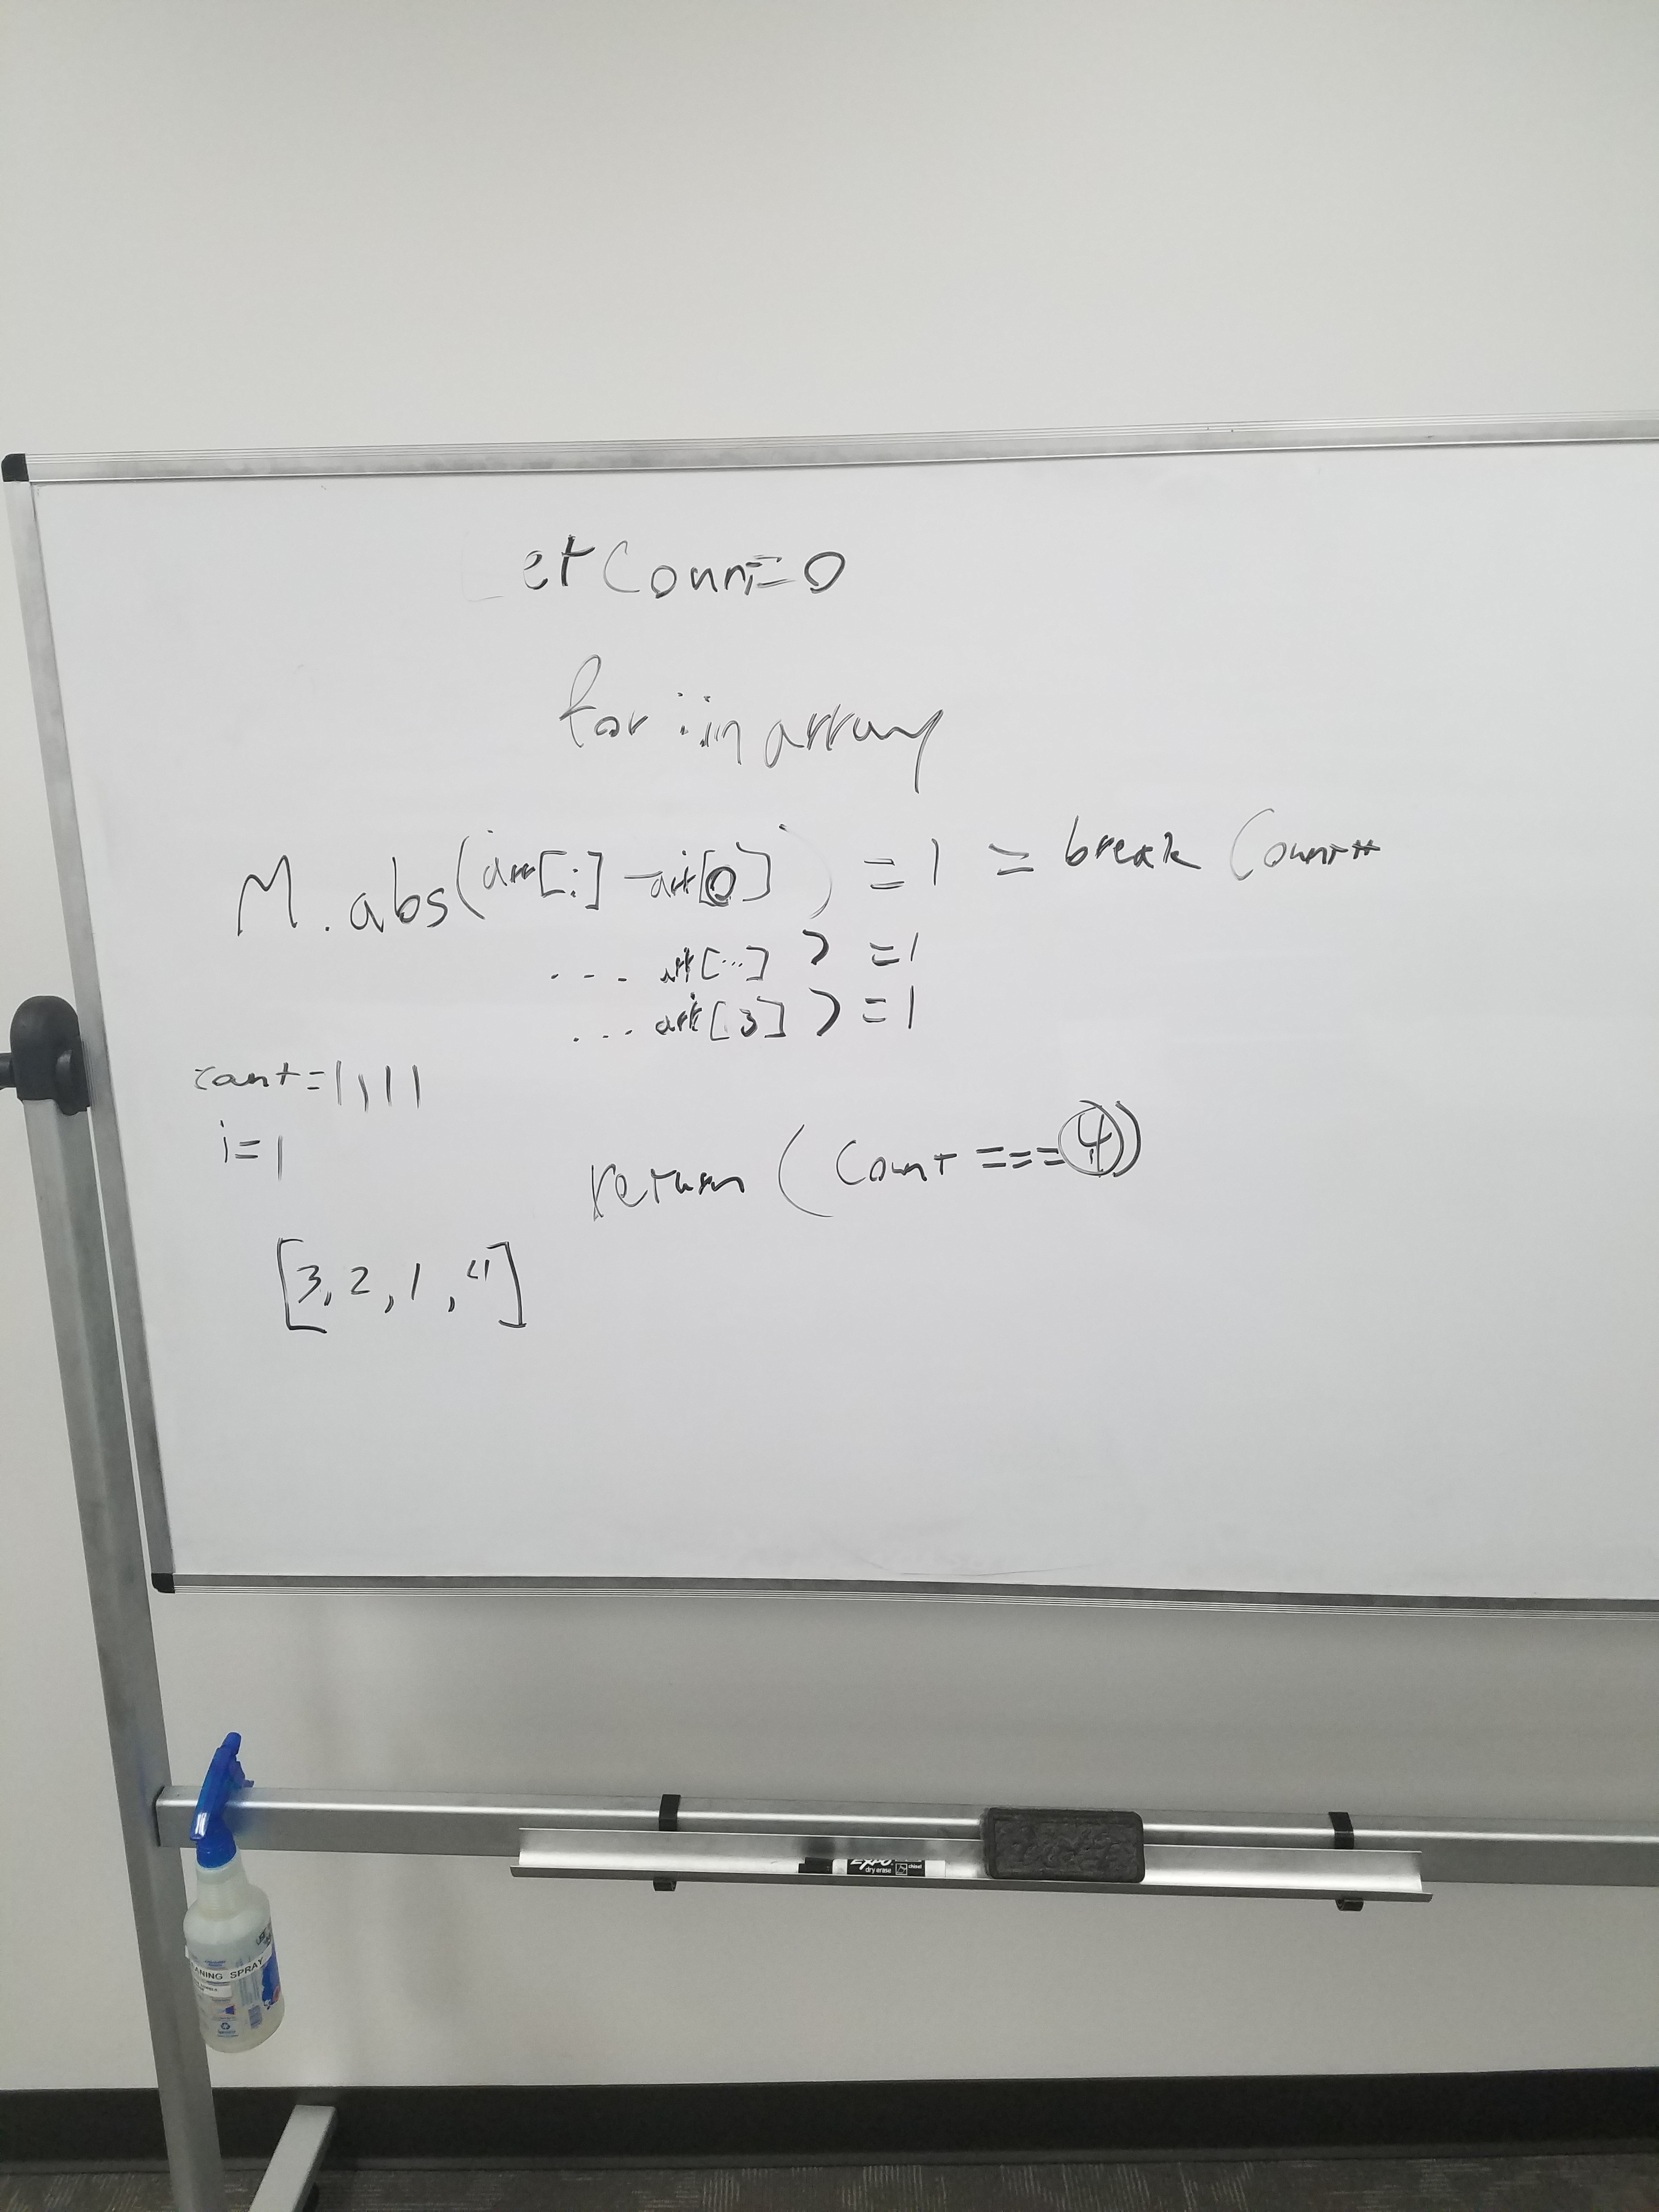 et Coun=0
for i in array
M.abs(arr[i] - arr[0]) = 1 = break Count++
... arr[...] ) = 1
... arr[3] ) = 1
count = 1111
i=1
return (Count === 4))
[3,2,1,4]
EXPO
dry erase
chisel
ANING SPRAY